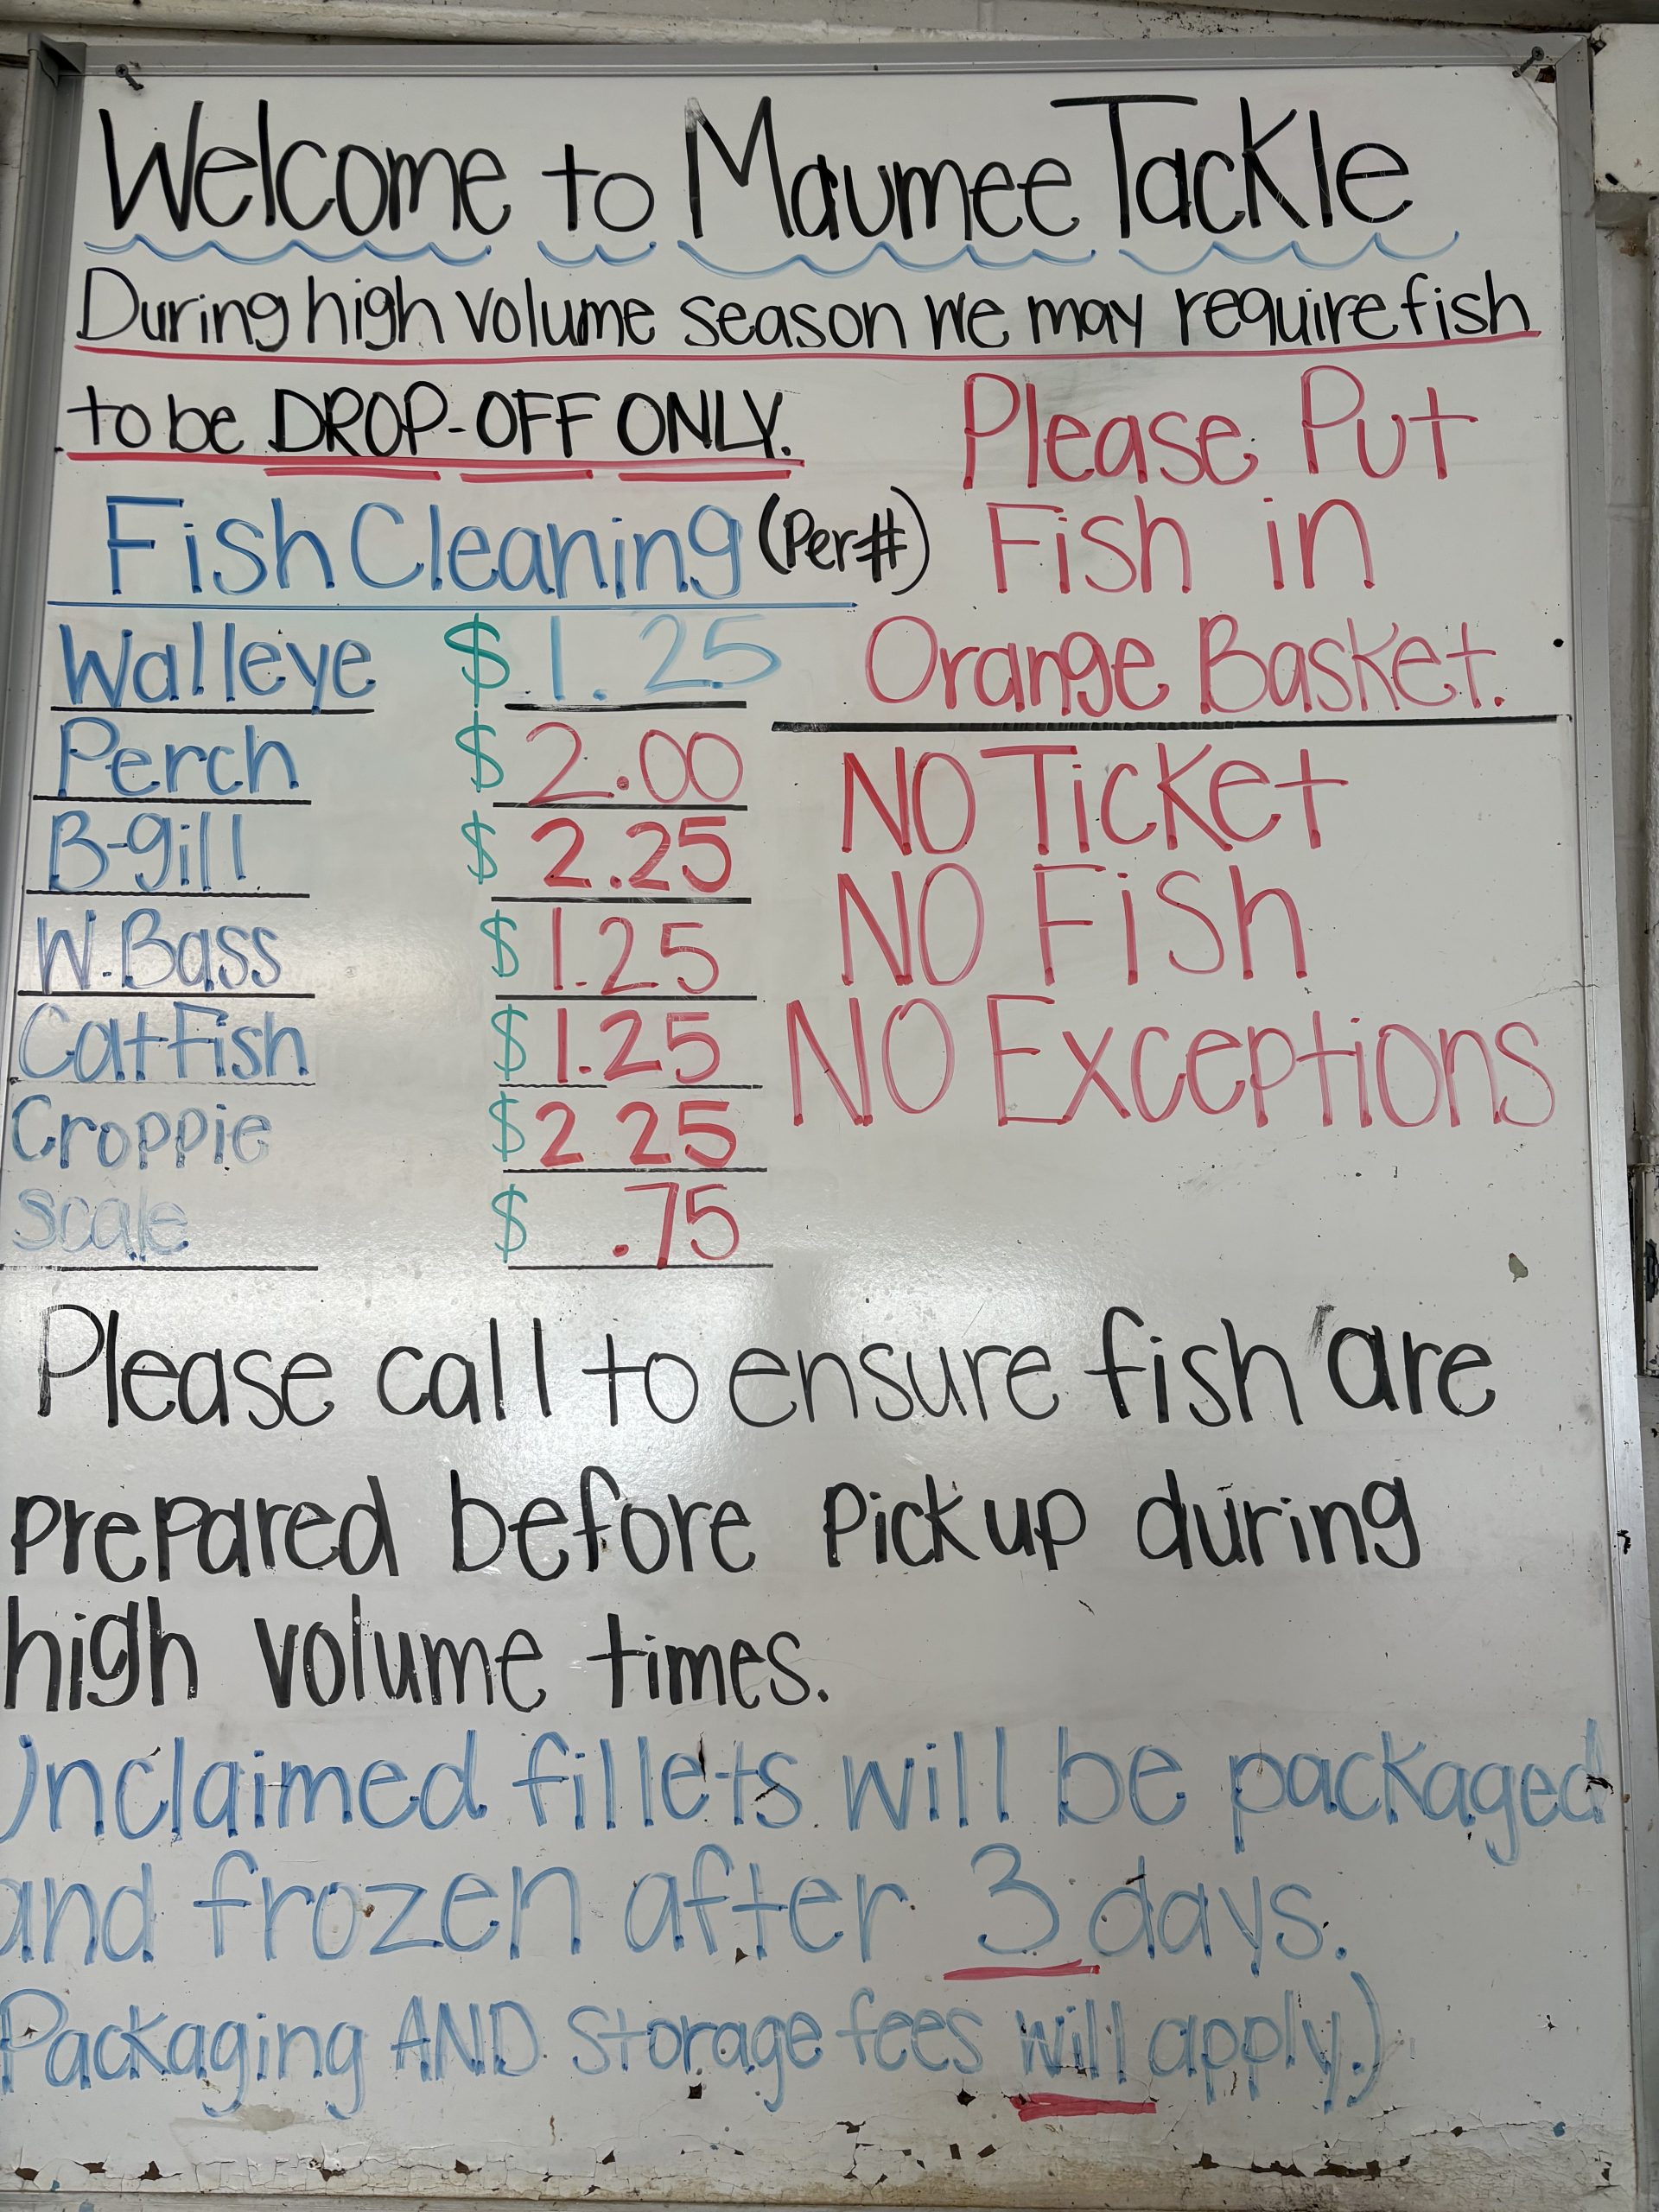 Welcome to Maumee Tackle
During high volume season we may require fish
to be DROP-OFF ONLY.
Fish Cleaning (Per#)
Walleye $ 1.25
Perch $ 2.00
B-gill $ 2.25
W. Bass $ 1.25
CatFish $ 1.25
Croppie $ 2 25
Scale $ .75
Please Put
Fish in
Orange Basket.
NO Ticket
NO Fish
NO Exceptions
Please call to ensure fish are
prepared before pickup during
high volume times.
Unclaimed fillets will be packaged
and frozen after 3 days.
Packaging AND Storage fees will apply.)